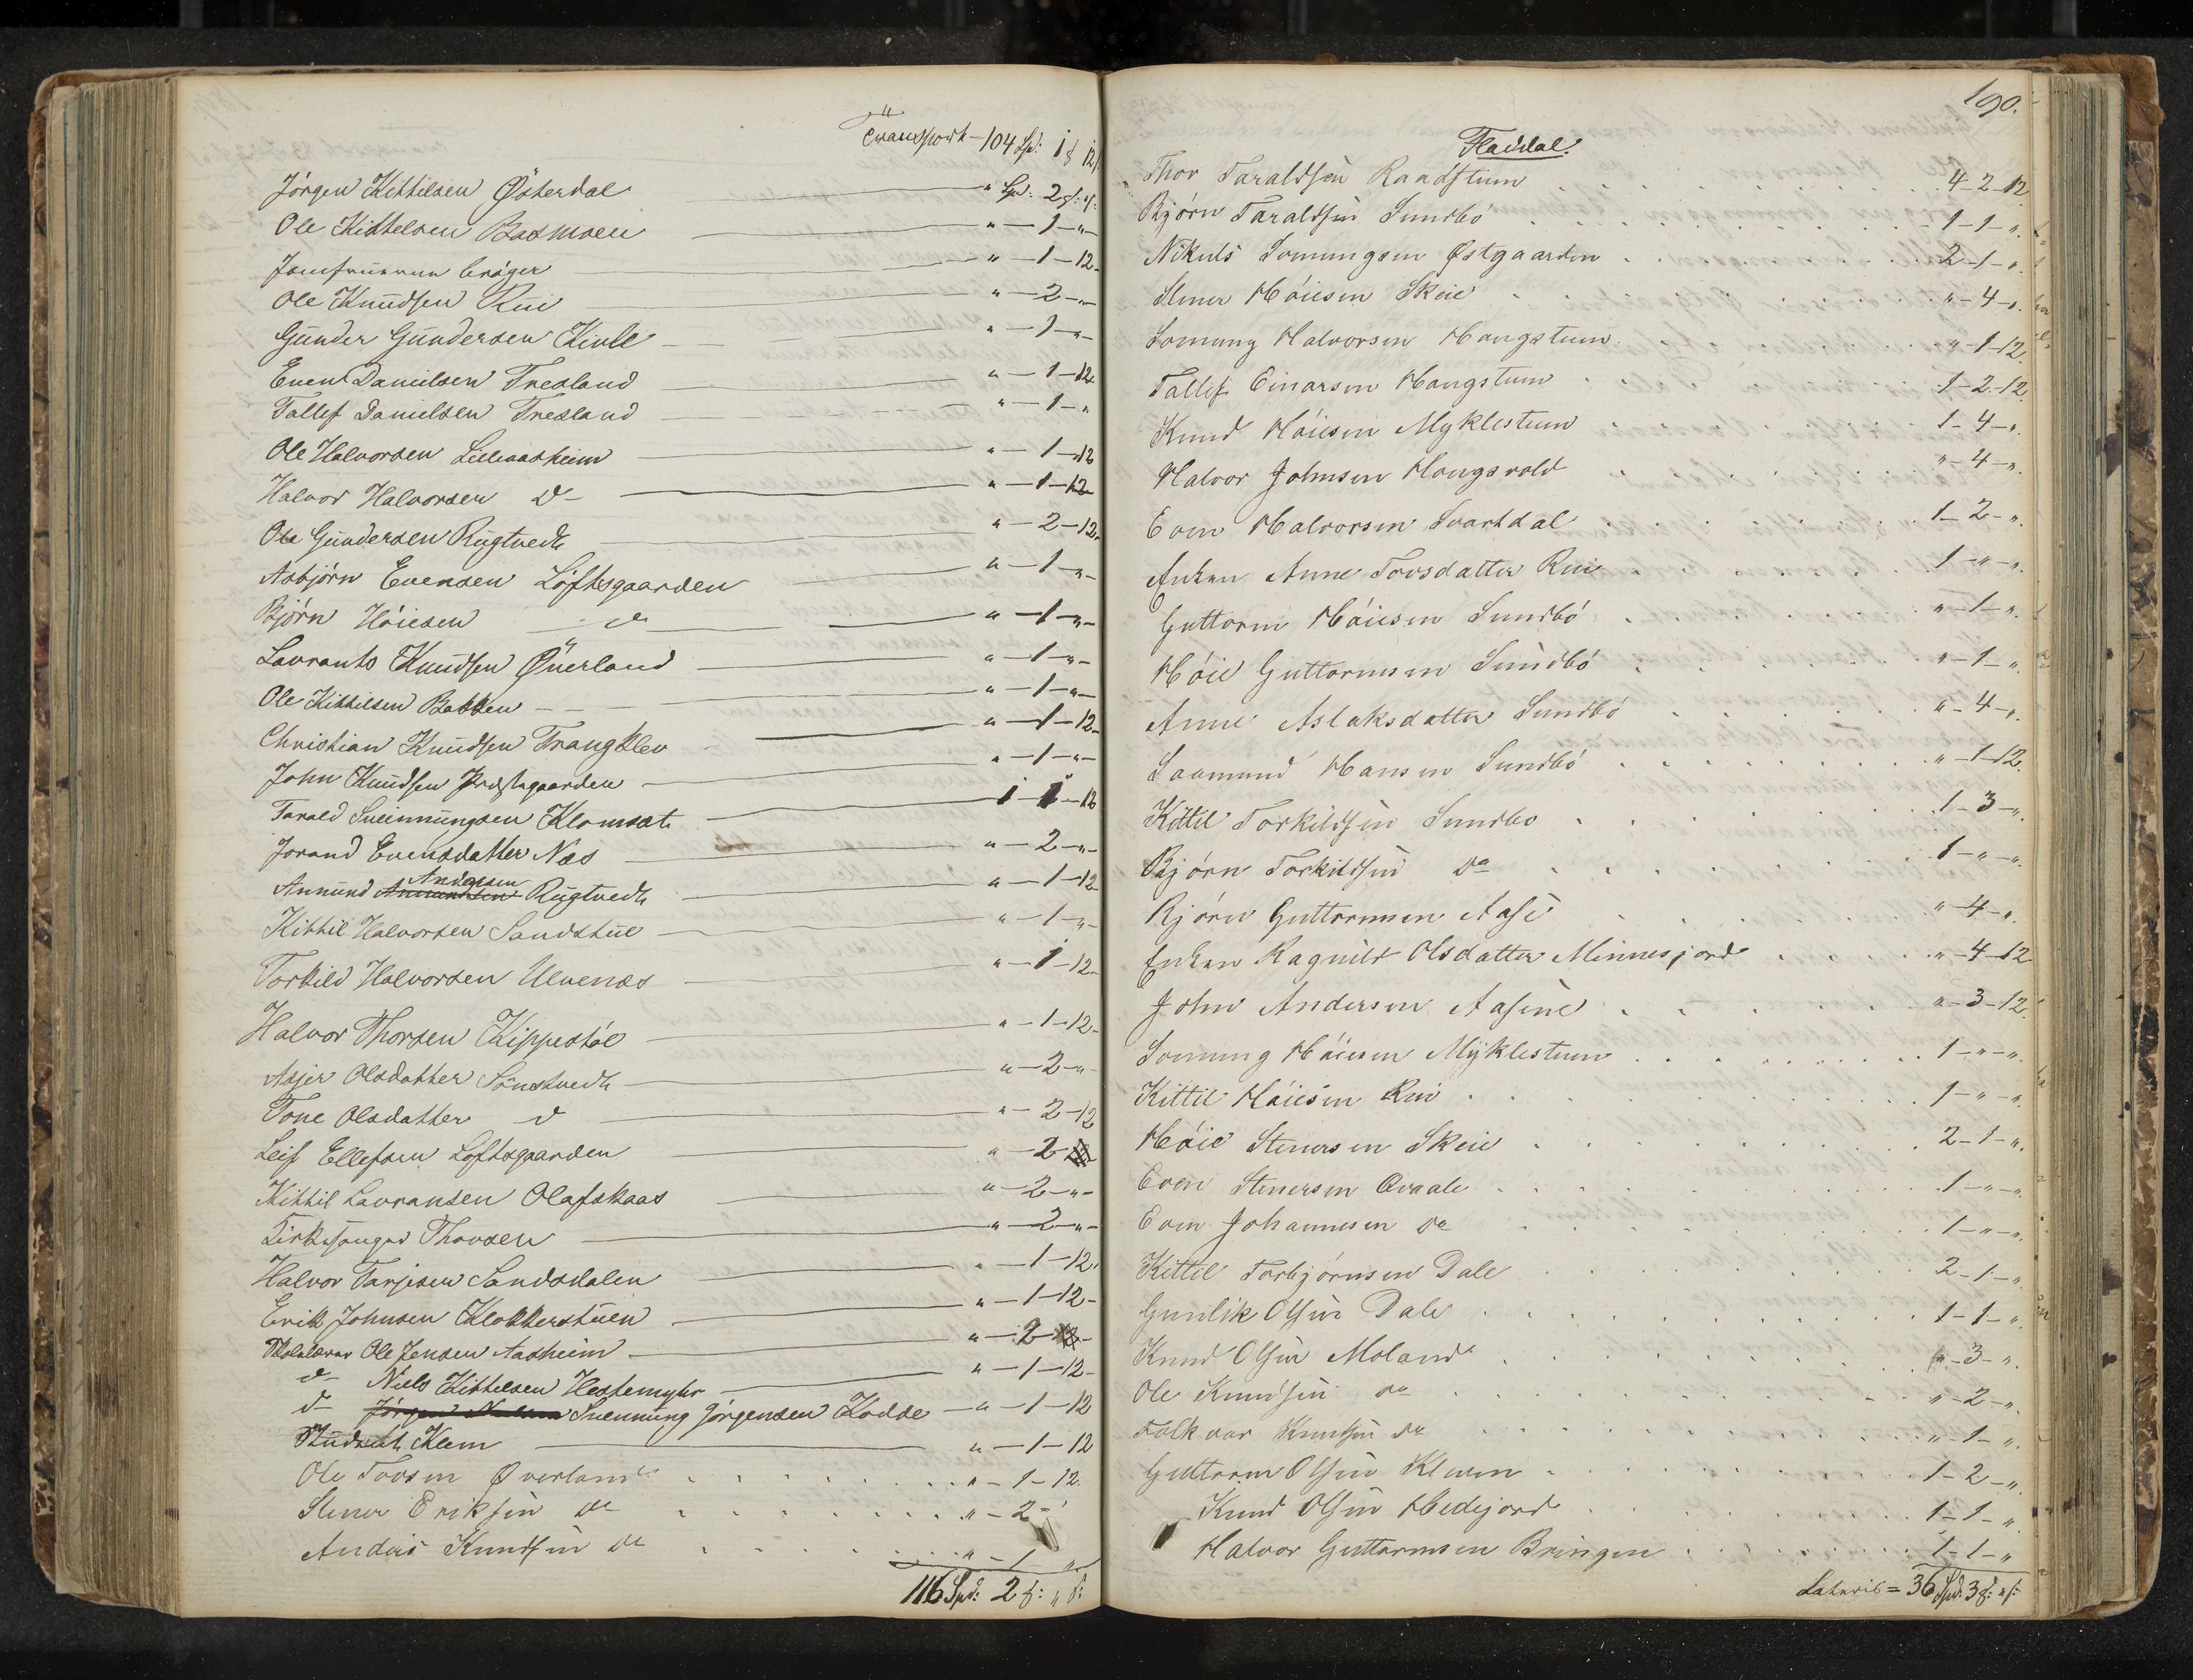 Transport - 104 Spd: 1 f 12 s
Jörgen Kittilsen Østerdal " Spd: 2 f: " s:
Ole Kittelsen Basmoen " - 1 - " -
Jomfruerne Crøger " - 1 - 12 -
Ole Knudsen Rui " - 2 - " -
Gunder Gundersen Kivle " - 1 - " -
Even Danielsen Tresland " - 1 - 12
Tallef Danielsen Tresland " - 1 - "
Ole Halvorsen Lilleaasheim " - 1 - 12
Halvor Halvorsen do " - 1 - 12
Ole Gundersen Rugtvedt " - 2 - 12 -
Asbjörn Evensen Löftsgaarden " - 1 - " -
Björn Höiesen do " - 1 - " -
Lavrants Knudsen Øverland " - 1 - " -
Ole Kittilsen Bakken " - 1 - " -
Christian Knudsen Trangklev " - 1 - 12 -
John Knudsen Prestegaarden " - 1 - " -
Tarald Sveinnungsen Klomset 1 - 1 - 12
Jorand Evensdatter Næs " - 2 - " -
Annund Amundsen Andersen Rugtvedt " - 1 - 12
Kittil Halvorsen Sandstue " - 1 - " -
Torkild Halvorsen Ulvenæs " - 1 - 12 -
Halvor Thorsen Kippestöl " - 1 - 12 -
Asjer Olsdatter Sönstvedt " - 2 - " -
Tone Olsdatter do " - 2 - 12
Leif Ellefsen Loftsgaarden " - 2 -
Kittil Lavransen Olafskaas " - 2 - " -
Kirkesanger Thovsen " - 2 - " -
Halvor Tarjesen Sandsdalen " - 1 - 12 -
Erik Johnsen Klokkerstuen " - 1 - 12 -
Skolelærer Ole Jensen Aasheim " - 2 -
do Niels Kittelsen Hestemyhr " - 1 - 12 -
do Jörgen Nielsen Svennung Jörgensen Kodde " - 1 - 12
Student Klem " - 1 - 12
Ole Tovsen Øverland " - 1 - 12.
Stener Eriksen do " - 2 - "
Anders Knudsen do " - 1 - "
116 Spd: 2 f: " s:
190.
Flatdal:
Thor Taraldsen Raadstuen 4 - 2 - 12
Björn Taraldsen Sundbö 1 - 1 - ".
Nikuls Somungsen Østgaarden 2 - 1 - ".
Stener Höiesen Skeie " - 4 - ".
Somung Halvorsen Haugstuen " - 1 - 12.
Tallef Einarsen Haugstuen 1 - 2 - 12.
Knud Höiesen Myklestuen 1 - 4 - ".
Halvor Johnsen Hongsvold " - 4 - ".
Even Halvorsen Svartdal 1 - 2 - ".
Enken Anne Tovsdatter Rui 1 - " - ".
Guttorm Höiesen Sundbö " - 1 - ".
Höie Guttormsen Sundbö " - 1 - ".
Anne Aslaksdatter Sundbö " - 4 - ".
Saamund Hansen Sundbö " - 1 - 12.
Kittil Torkildsen Sundbo 1 - 3 - ".
Björn Torkildsen do 1 - " - ".
Björn Guttormsen Aase " - 4 - ".
Enken Ragnild Olsdatter Minnesjord " - 4 - 12
John Andersen Aasene " - 3 - 12.
Somung Höiesen Myklestuen 1 - " - ".
Kittil Höiesen Rui 1 - " - ".
Höie Stenersen Skeie 2 - 1 - ".
Even Stenersen Qvaale 1 - " - ".
Even Johannesen do 1 - " - ".
Kittil Torbjörnsen Dale 2 - 1 - ".
Gunlik Olsen Dale 1 - 1 - ".
Knud Olsen Moland " - 3 - ".
Ole Knudsen do " - 2 - ".
Folkvar Knudsen do " - 1 - ".
Guttorm Olsen Kleven 1 - 2 - ".
Knud Olsen Hedejord 1 - 1 - ".
Halvor Guttormsen Bringen 1 - 1 - "
Lateris = 36 Spd: 3 f: " s: